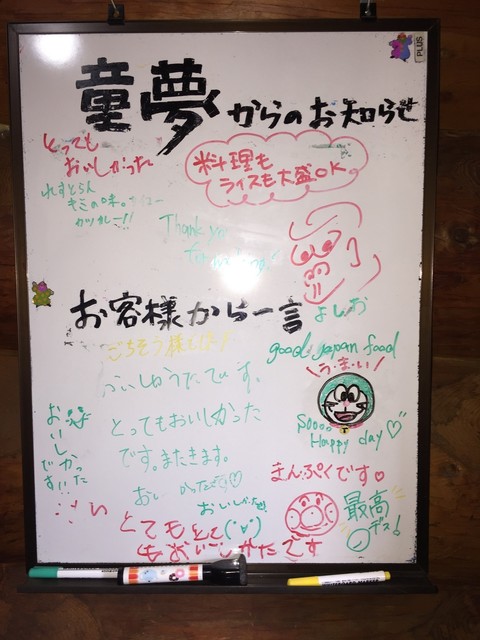 PLUS
童夢からのお知らせ
とっても
おいしかった
料理も
ライスも大盛OK
れすとらん
キミの味。
カツカレー!!
Thank you
よしお
お客様から一言
ごちそう様でした
good Japan food
\う・ま・い/
とってもおいしかった
です。またきます。
Soooo
Happy day♡
おいしかった
です!!
まんぷくです♥
おいしかったです♡
最高
デス!
とてもとても
おいしかたです